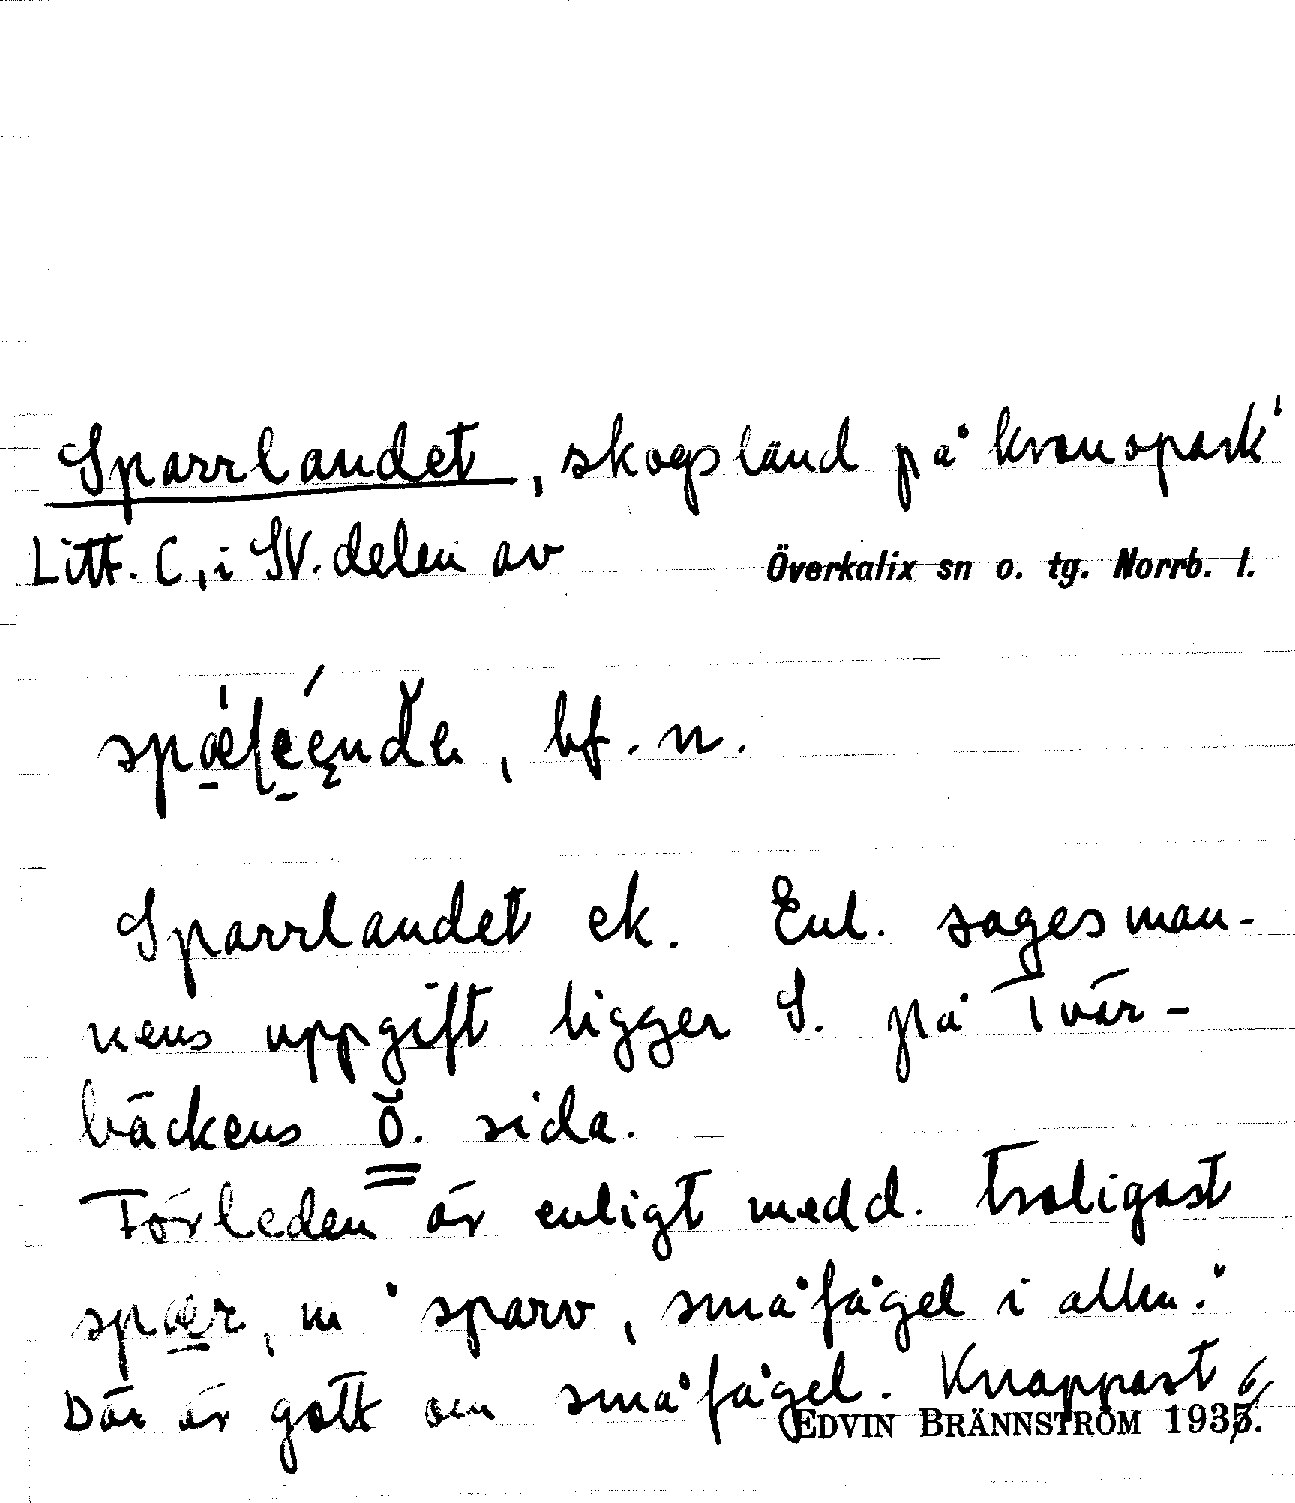 Sparrlandet, skogsland på kronopark
Litt. C, i SV. delen av Överkalix sn o. tg. Norrb. l.
bf. n.
Sparrlandet ek. Enl. sagesman-
nens uppgift ligger S. på Tvär-
bäckens ö. sida.
Förleden är enligt medd. troligast
spær, m "sparv, småfågel i allm."
Där är gott om småfågel. Knappast
EDVIN BRÄNNSTRÖM 1936.